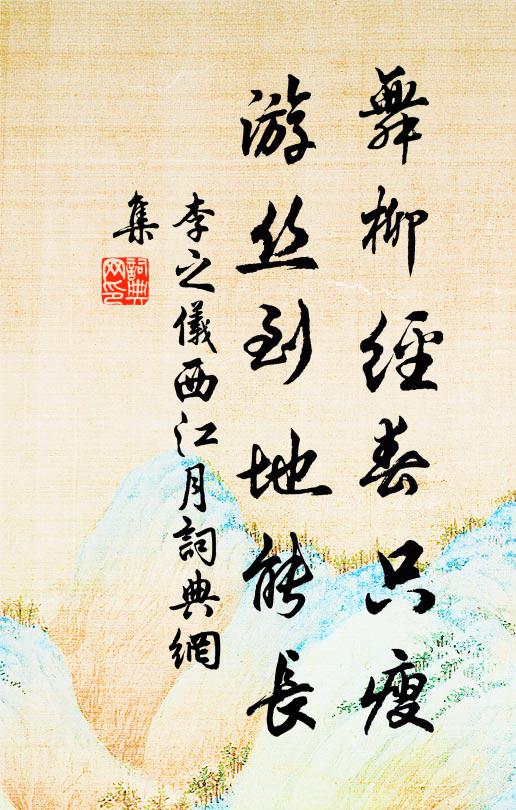 舞柳經春只瘦
游丝到地能長
李之儀西江月詞典網
集
詞典
网印